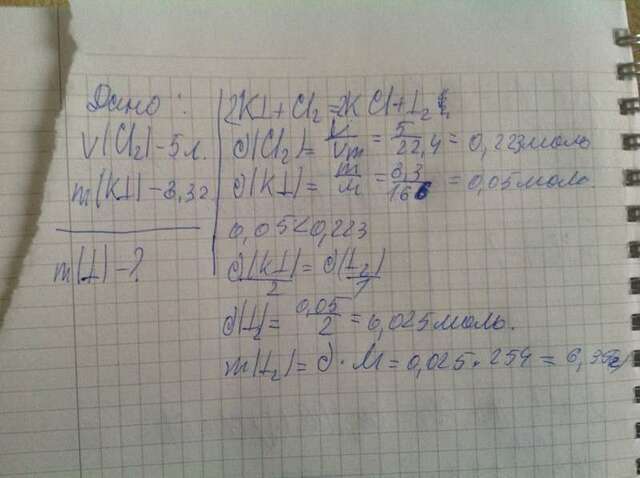 Дано:
V(Cl₂)-5л.
m(KI)-8,3г.
m(I)-?
2KI+Cl₂=2KCl+I₂
∂(Cl₂)=V/Vm=5/22,4=0,223моль
∂(KI)=m/M=8,3/166=0,05моль.
0,05<0,223
∂(KI)/2=∂(I₂)/1
∂I₂=0,05/2=0,025моль.
m(I₂)=∂·M=0,025·254=6,35г